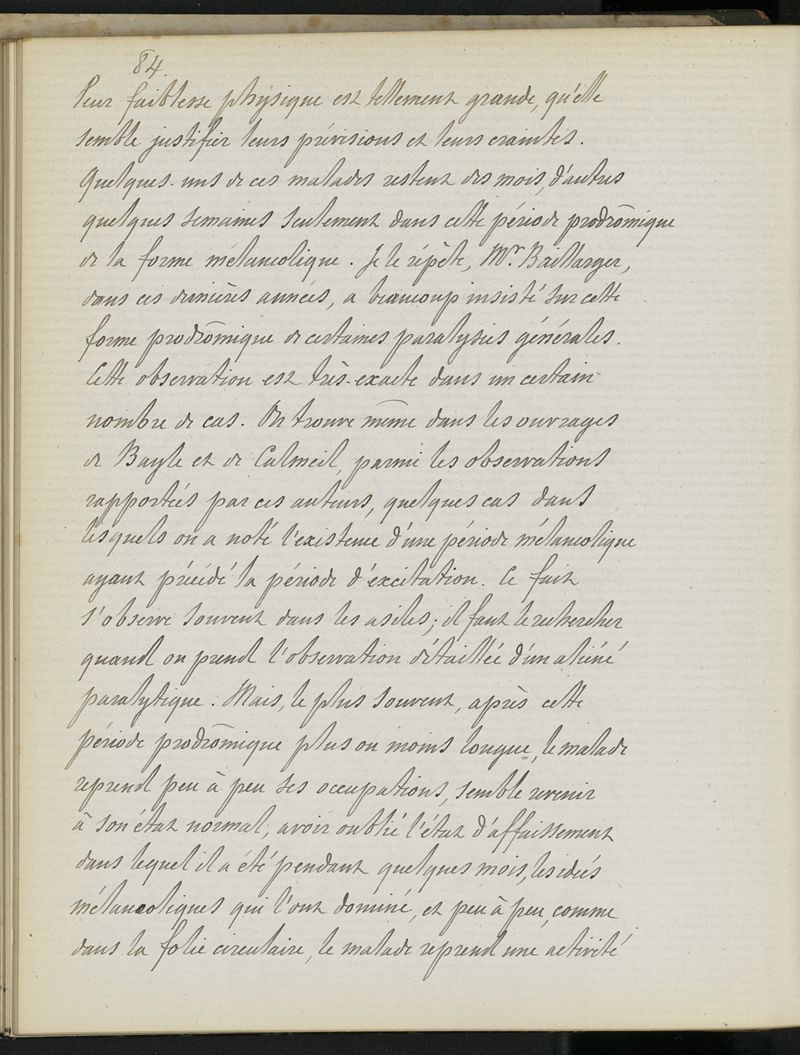 84.
leur faiblesse physique est tellement grande, qu'elle
semble justifier leurs prévisions et leurs craintes.
Quelques-uns de ces malades restent des mois, d'autres
quelques semaines seulement dans cette période prodrômique
de la forme mélancolique. Je le répète, Mr. Baillarger,
dans ces dernières années, a beaucoup insisté sur cette
forme prodrômique de certaines paralysies générales.
Cette observation est très-exacte dans un certain
nombre de cas. On trouve même dans les ouvrages
de Bayle et de Calmeil, parmi les observations
rapportées par ces auteurs, quelques cas dans
lesquels on a noté l'existence d'une période mélancolique
ayant précédé la période d'excitation. Ce fait
s'observe souvent dans les asiles; il faut le rechercher
quand on prend l'observation détaillée d'un aliéné
paralytique. Mais, le plus souvent, après cette
période prodrômique plus ou moins longue, le malade
reprend peu à peu ses occupations, semble revenir
à son état normal, avoir oublié l'état d'affaissement
dans lequel il a été pendant quelques mois, les idées
mélancoliques qui l'ont dominé, et peu à peu, comme
dans la folie circulaire, le malade reprend une activité